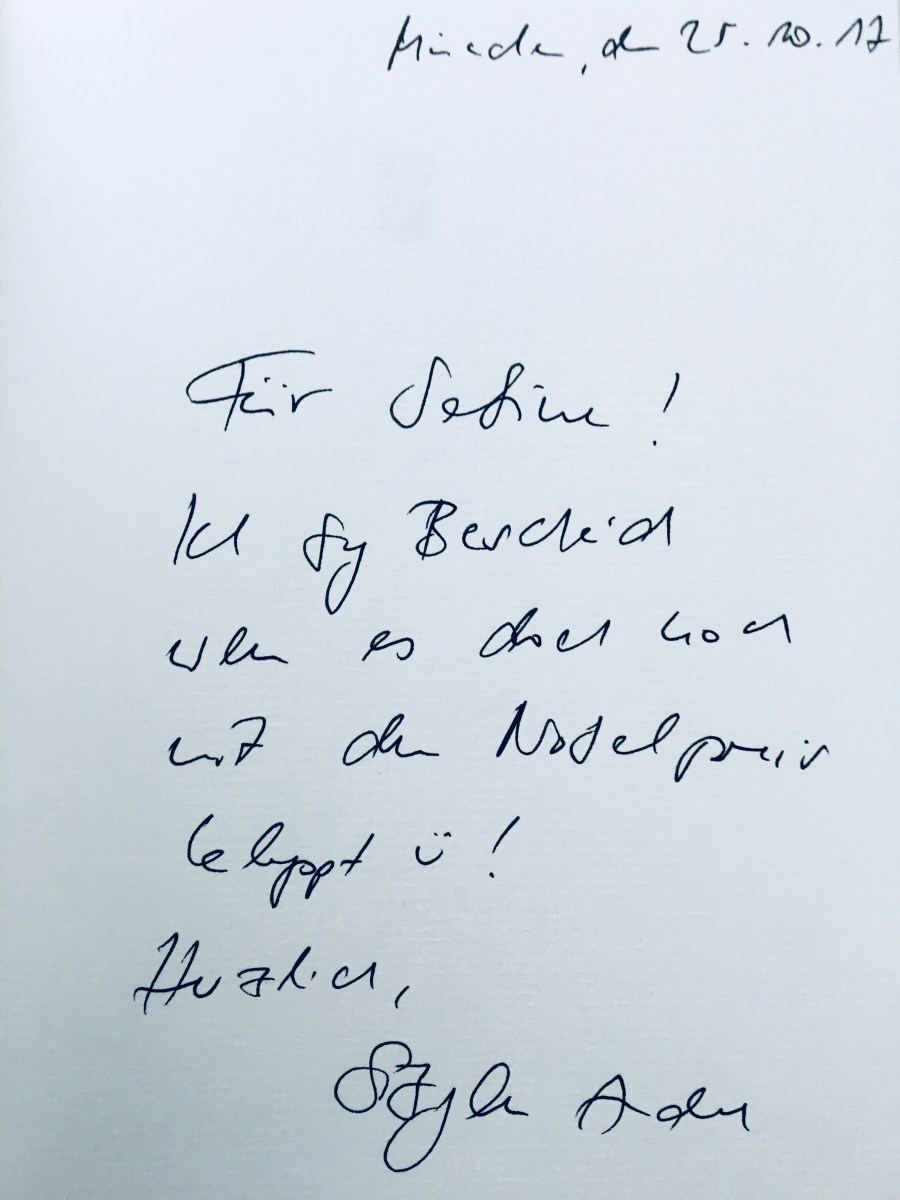 München, den 25.10.17
Für Sabine!
Ich sag Bescheid
wenn es doch noch
mit dem Nobelpreis
geklappt ü!
Herzlich,